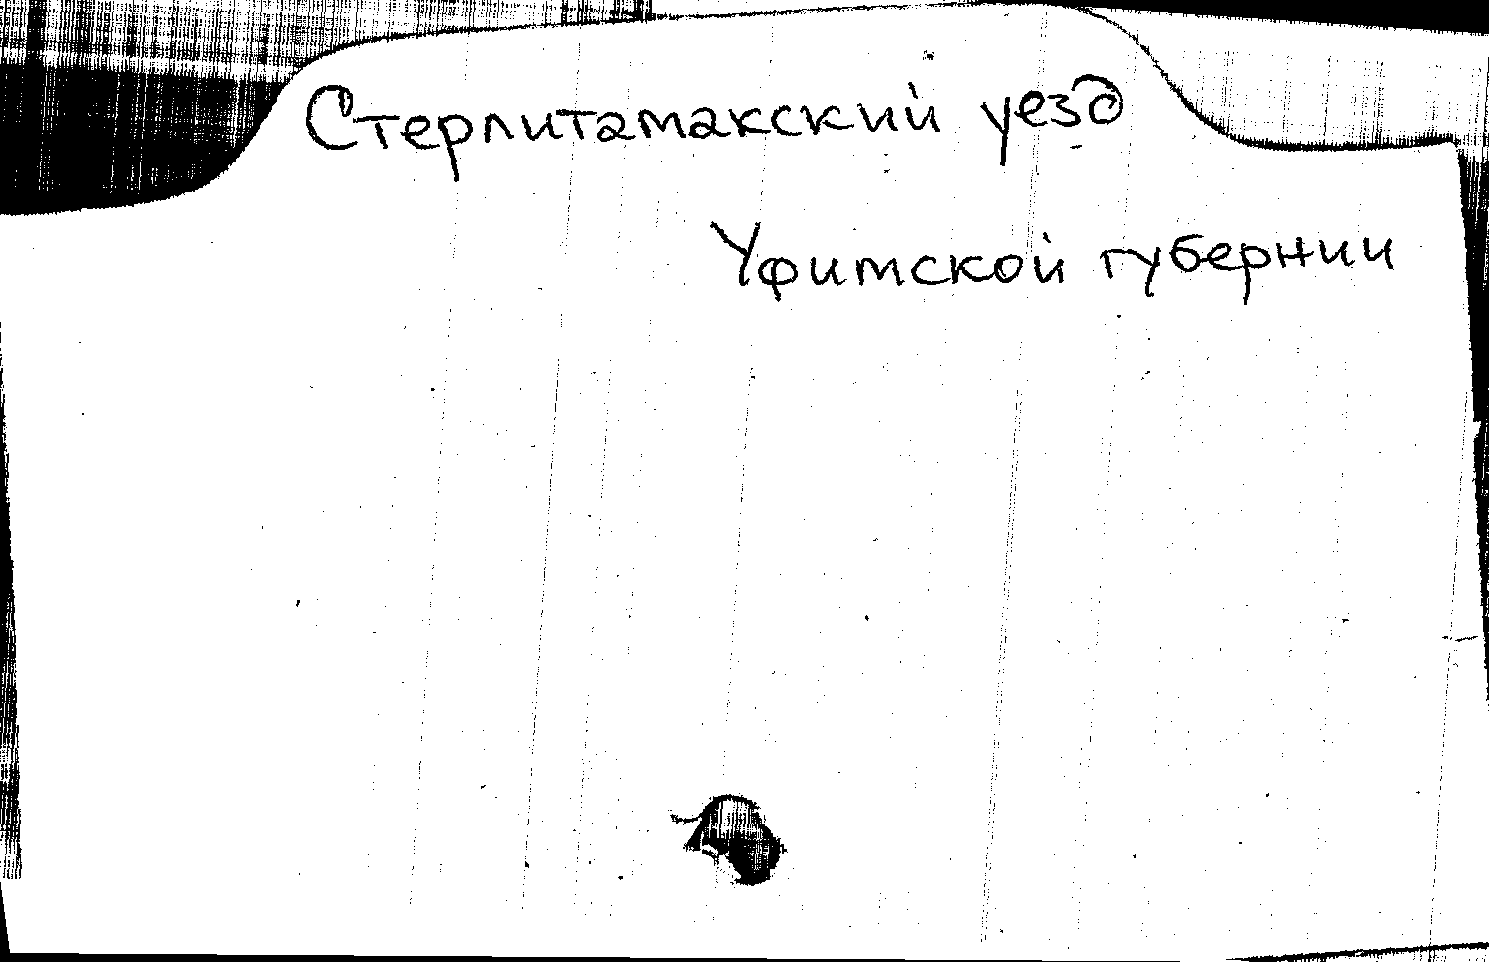 Стерлитамакский уезд
Уфитской губернии